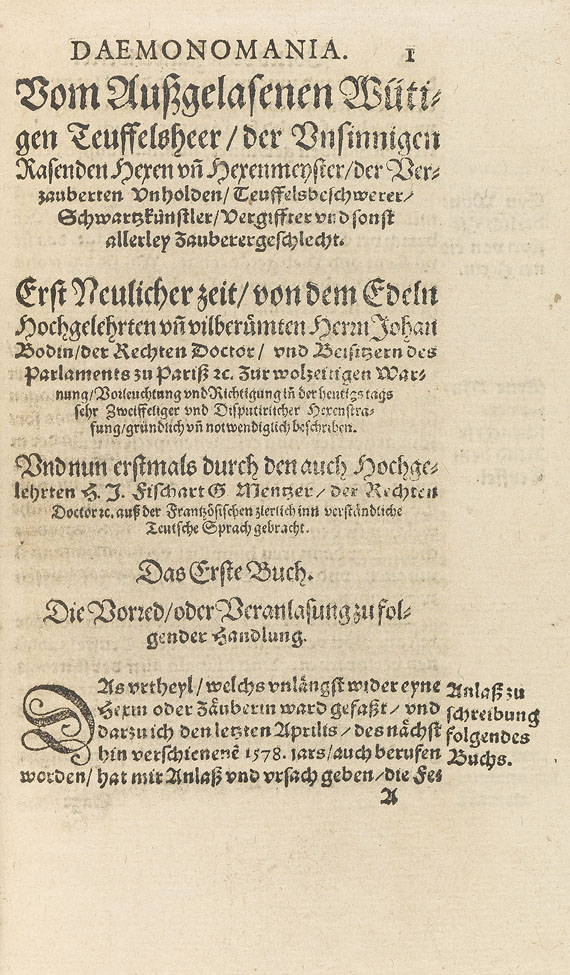 DAEMONOMANIA. 1
Vom Außgelasenen Wüti-
gen Teuffelsheer / der Vnsinnigen
Rasenden Hexen vñ Hexenmeyster/der Ver-
zauberten Vnholden/ Teuffelsbeschwerer/
Schwartzkünstler/Vergiffter vnd sonst
allerley Zauberergeschlecht.
Erst Neulicher zeit/ von dem Edeln
Hochgelehrten vñ vilberümten Herrn Johan
Bodin/der Rechten Doctor/ vnd Beisitzern des
Parlaments zu Pariß ꝛc. Zur wolzeitigen War-
nung/Vorleuchtung vnd Richtigung in der heutigs tags
sehr Zweiffeliger vnd Disputirlicher Hexenstra-
fung/gründlich vñ notwendiglich beschriben.
Vnd nun erstmals durch den auch Hochge-
lehrten H. J. Fischart G. Mentzer / der Rechten
Doctor ꝛc. auß der Frantzösischen zierlich inn verständliche
Teutsche Sprach gebracht.
Das Erste Buch.
Die Vorred/oder Veranlasung zu fol-
gender Handlung.
DAs vrtheyl / welchs vnlängst wider eyne
Hexin oder Zäuberin ward gefaßt/ vnd
darzu ich den letzten Aprilis / des nächst
hin verschienenẽ 1578. jars/auch berufen
worden/ hat mir Anlaß vnd vrsach geben/die Fe-
Anlaß zu
schreibung
folgendes
Buchs.
A